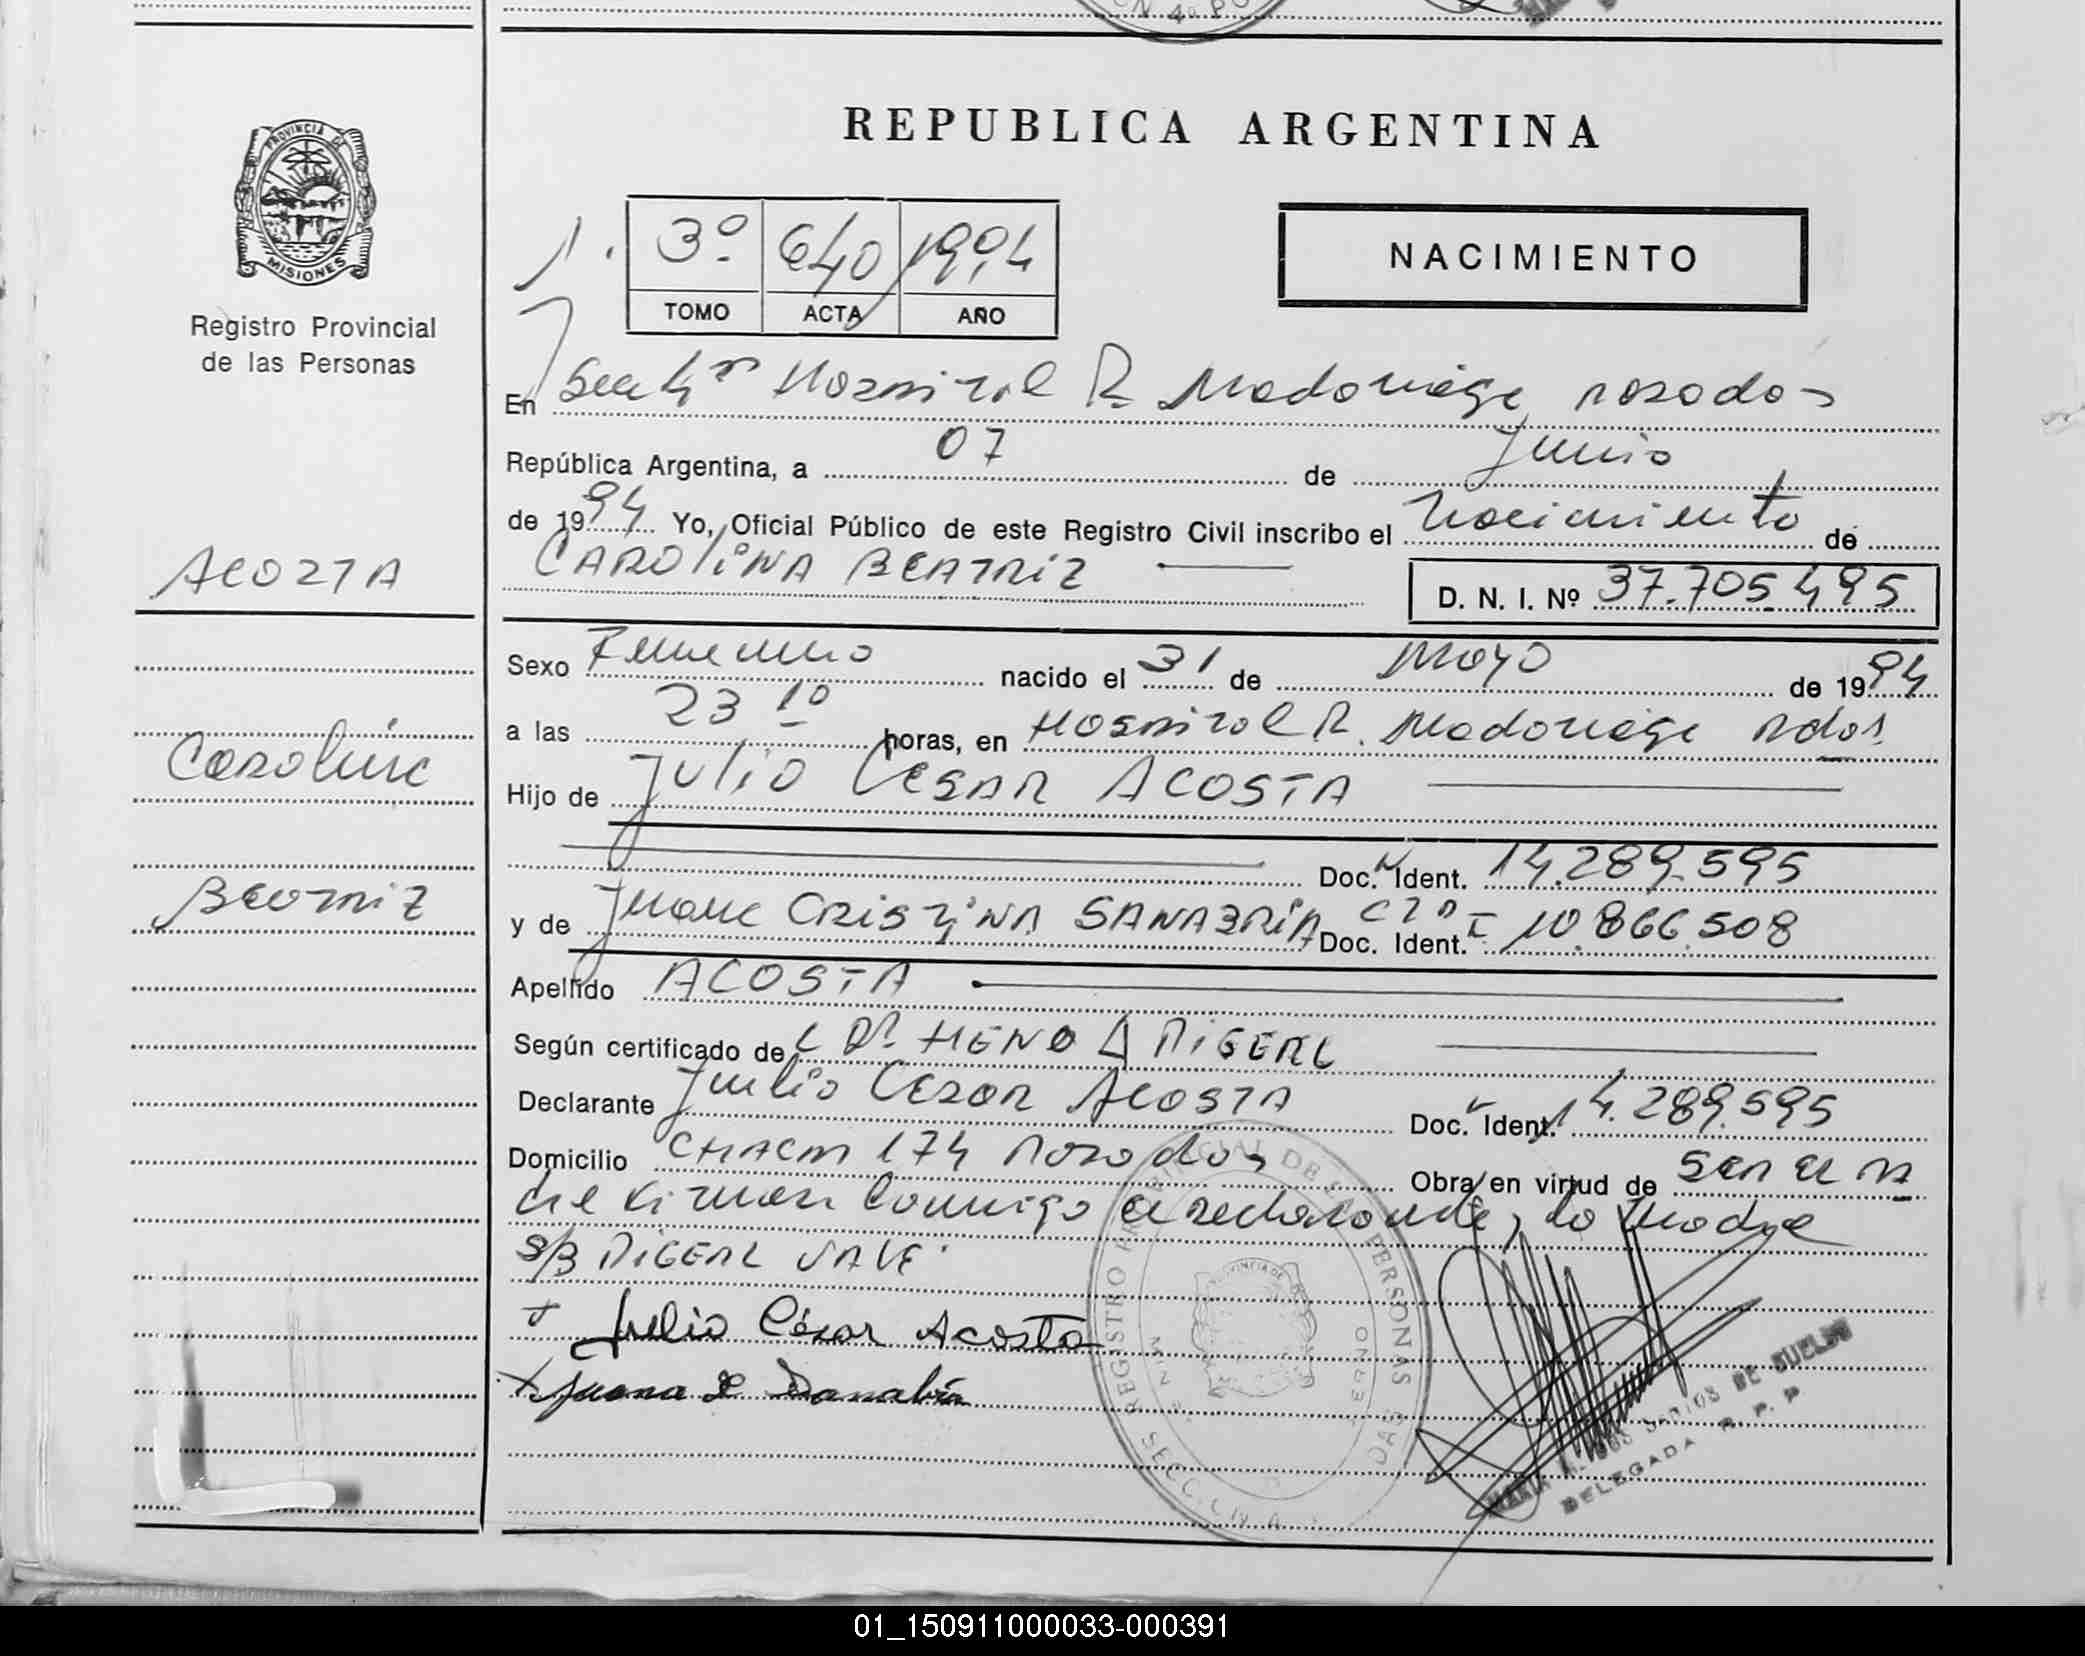 REPUBLICA ARGENTINA
PROVINCIA DE
MISIONES
Registro Provincial
de las Personas
3º 640 1994
TOMO ACTA AÑO
NACIMIENTO
En Hospital R. Madariaga posadas
República Argentina, a 07 de Junio
de 1994 Yo, Oficial Público de este Registro Civil inscribo el Nacimiento de
CAROLINA BEATRIZ D. N. I. Nº 37.705.495
ACOSTA
Carolina
Beatriz
Sexo Femenino nacido el 31 de Mayo de 1994
a las 23 10 horas, en Hospital R. Madariaga Pdas.
Hijo de Julio CESAR ACOSTA
Doc. Ident. 14.289.595
y de Juana CRISTINA SANABRIA Doc. Ident. 10.866.508
Apellido ACOSTA
Según certificado de
Declarante Julio Cesar ACOSTA Doc. Ident. 14.289.595
Domicilio 174 Posadas Obra en virtud de SER EL P
firman conmigo el declarante, la Madre
S/B VALE
Julio César Acosta
x Juana C Sanabria
REGISTRO PROVINCIAL DE LAS PERSONAS
SECC.
DELEGADA R. P. P
01_150911000033-000391